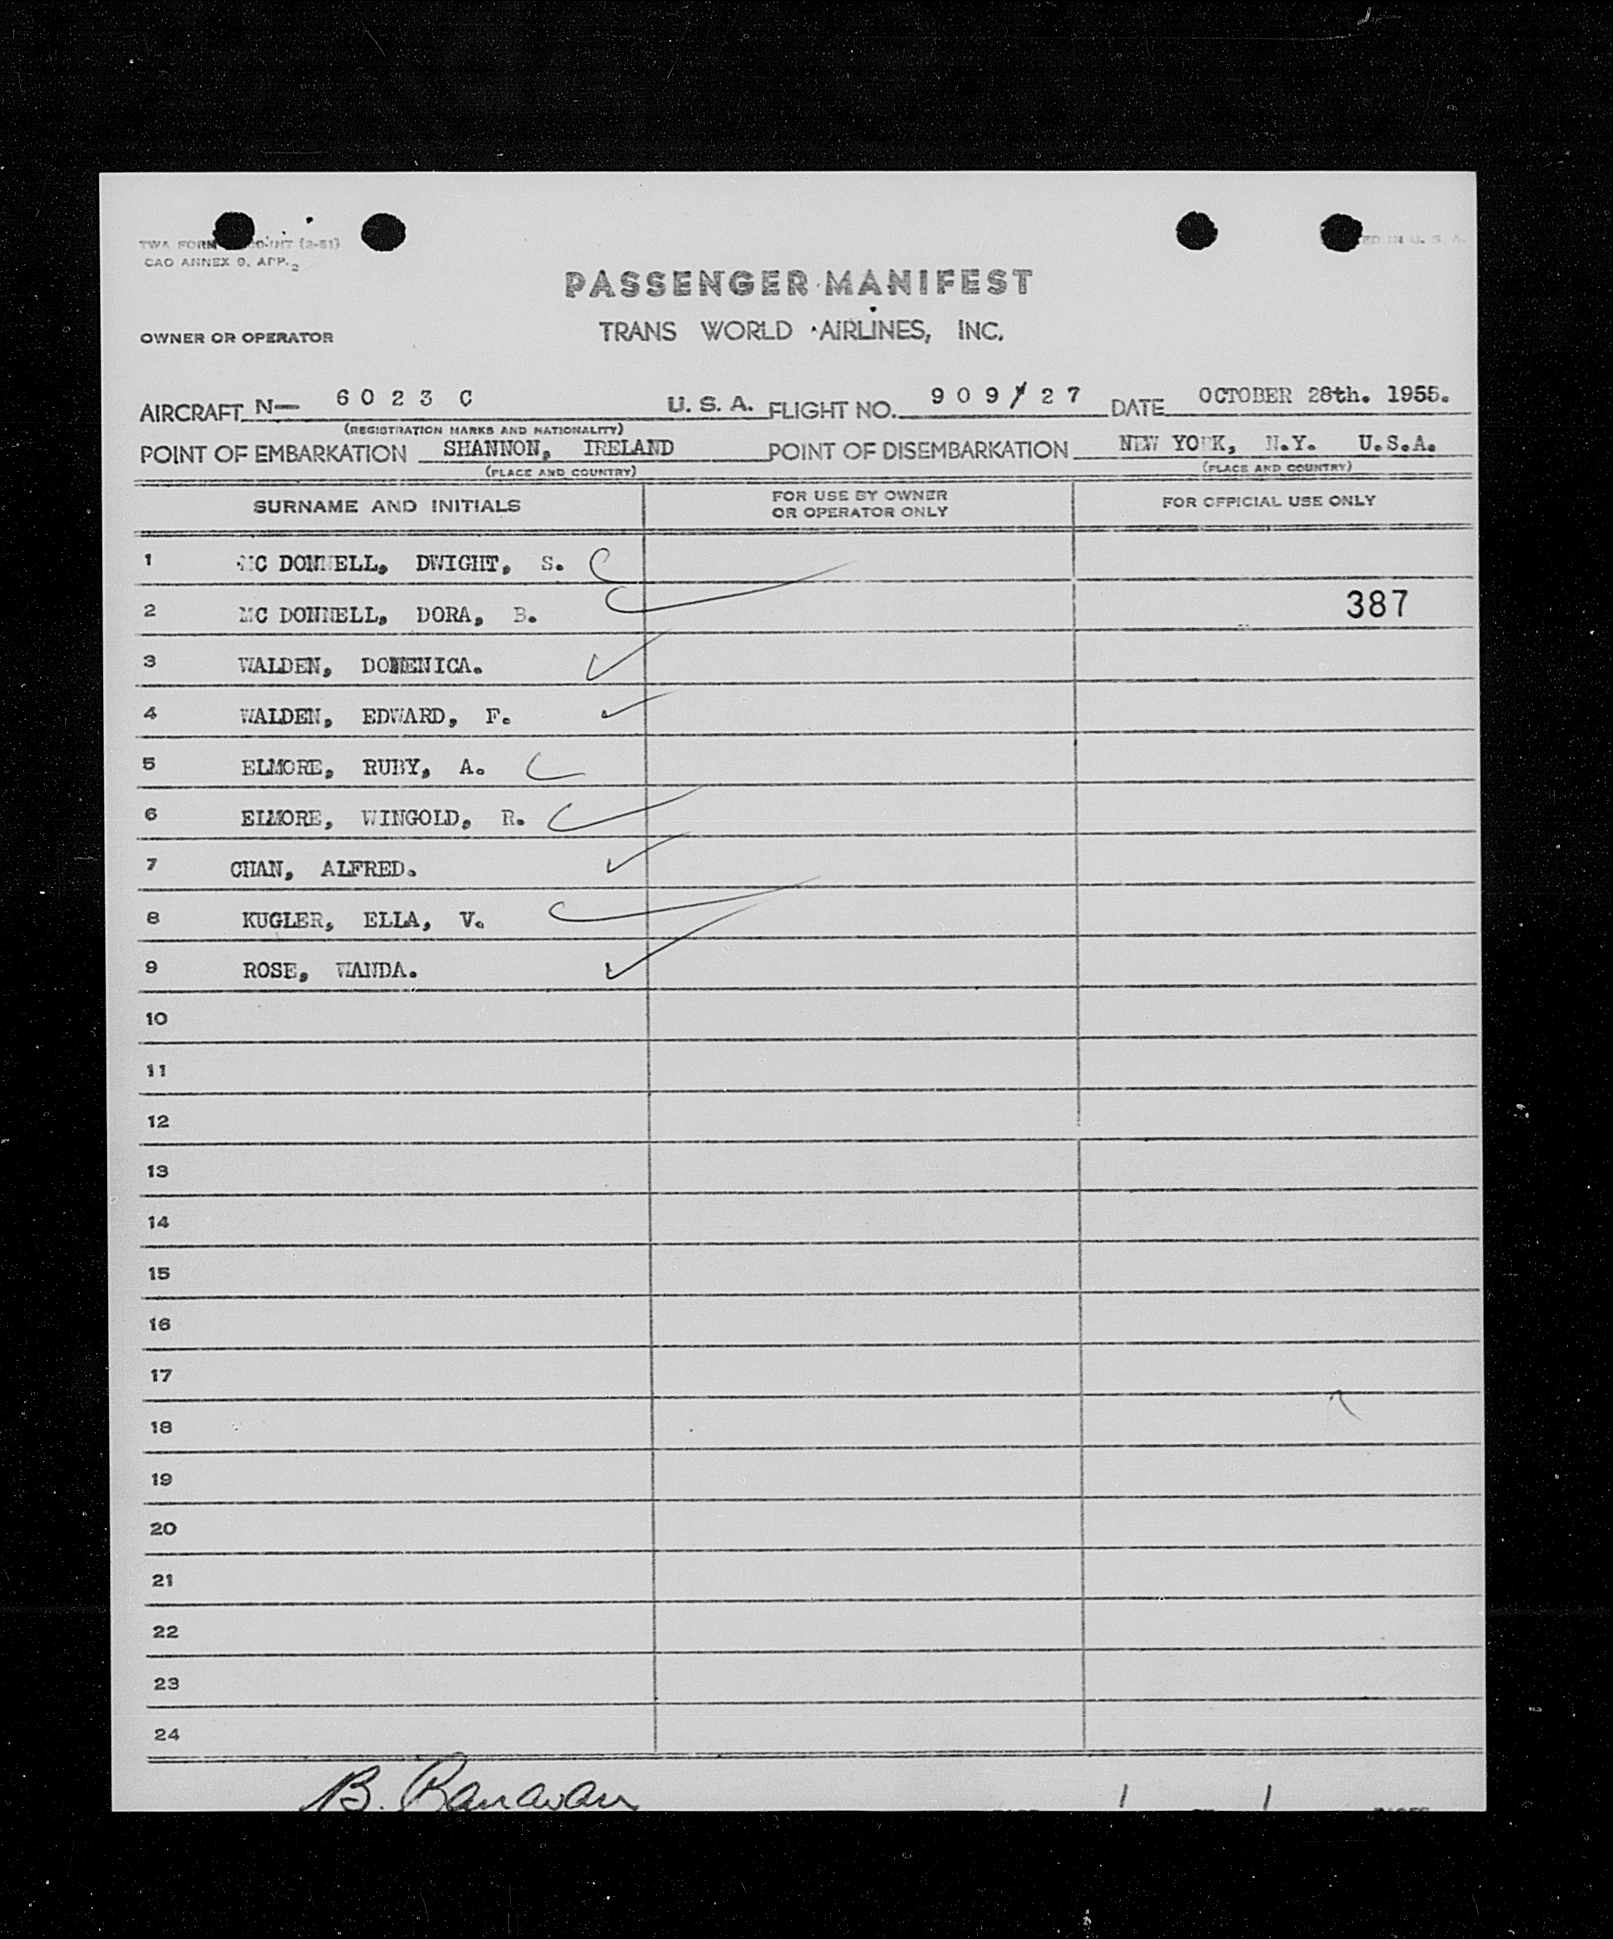 TWA FORM (2-51)
CAO ANNEX 9, APP. 2
ED IN U. S. A.
PASSENGER MANIFEST
OWNER OR OPERATOR TRANS WORLD AIRLINES, INC.
AIRCRAFT N— 6 0 2 3 C U. S. A. FLIGHT NO. 9 0 9 / 2 7 DATE OCTOBER 28th. 1955.
(REGISTRATION MARKS AND NATIONALITY)
POINT OF EMBARKATION SHANNON, IRELAND POINT OF DISEMBARKATION NEW YORK, N.Y. U.S.A.
(PLACE AND COUNTRY) (PLACE AND COUNTRY)
SURNAME AND INITIALS FOR USE BY OWNER OR OPERATOR ONLY FOR OFFICIAL USE ONLY
1 MC DONNELL, DWIGHT, S.
2 MC DONNELL, DORA, B. 387
3 WALDEN, DOMENICA.
4 WALDEN, EDWARD, F.
5 ELMORE, RUBY, A.
6 ELMORE, WINGOLD, R.
7 CHAN, ALFRED.
8 KUGLER, ELLA, V.
9 ROSE, WANDA.
10
11
12
13
14
15
16
17
18
19
20
21
22
23
24
B. 1 1